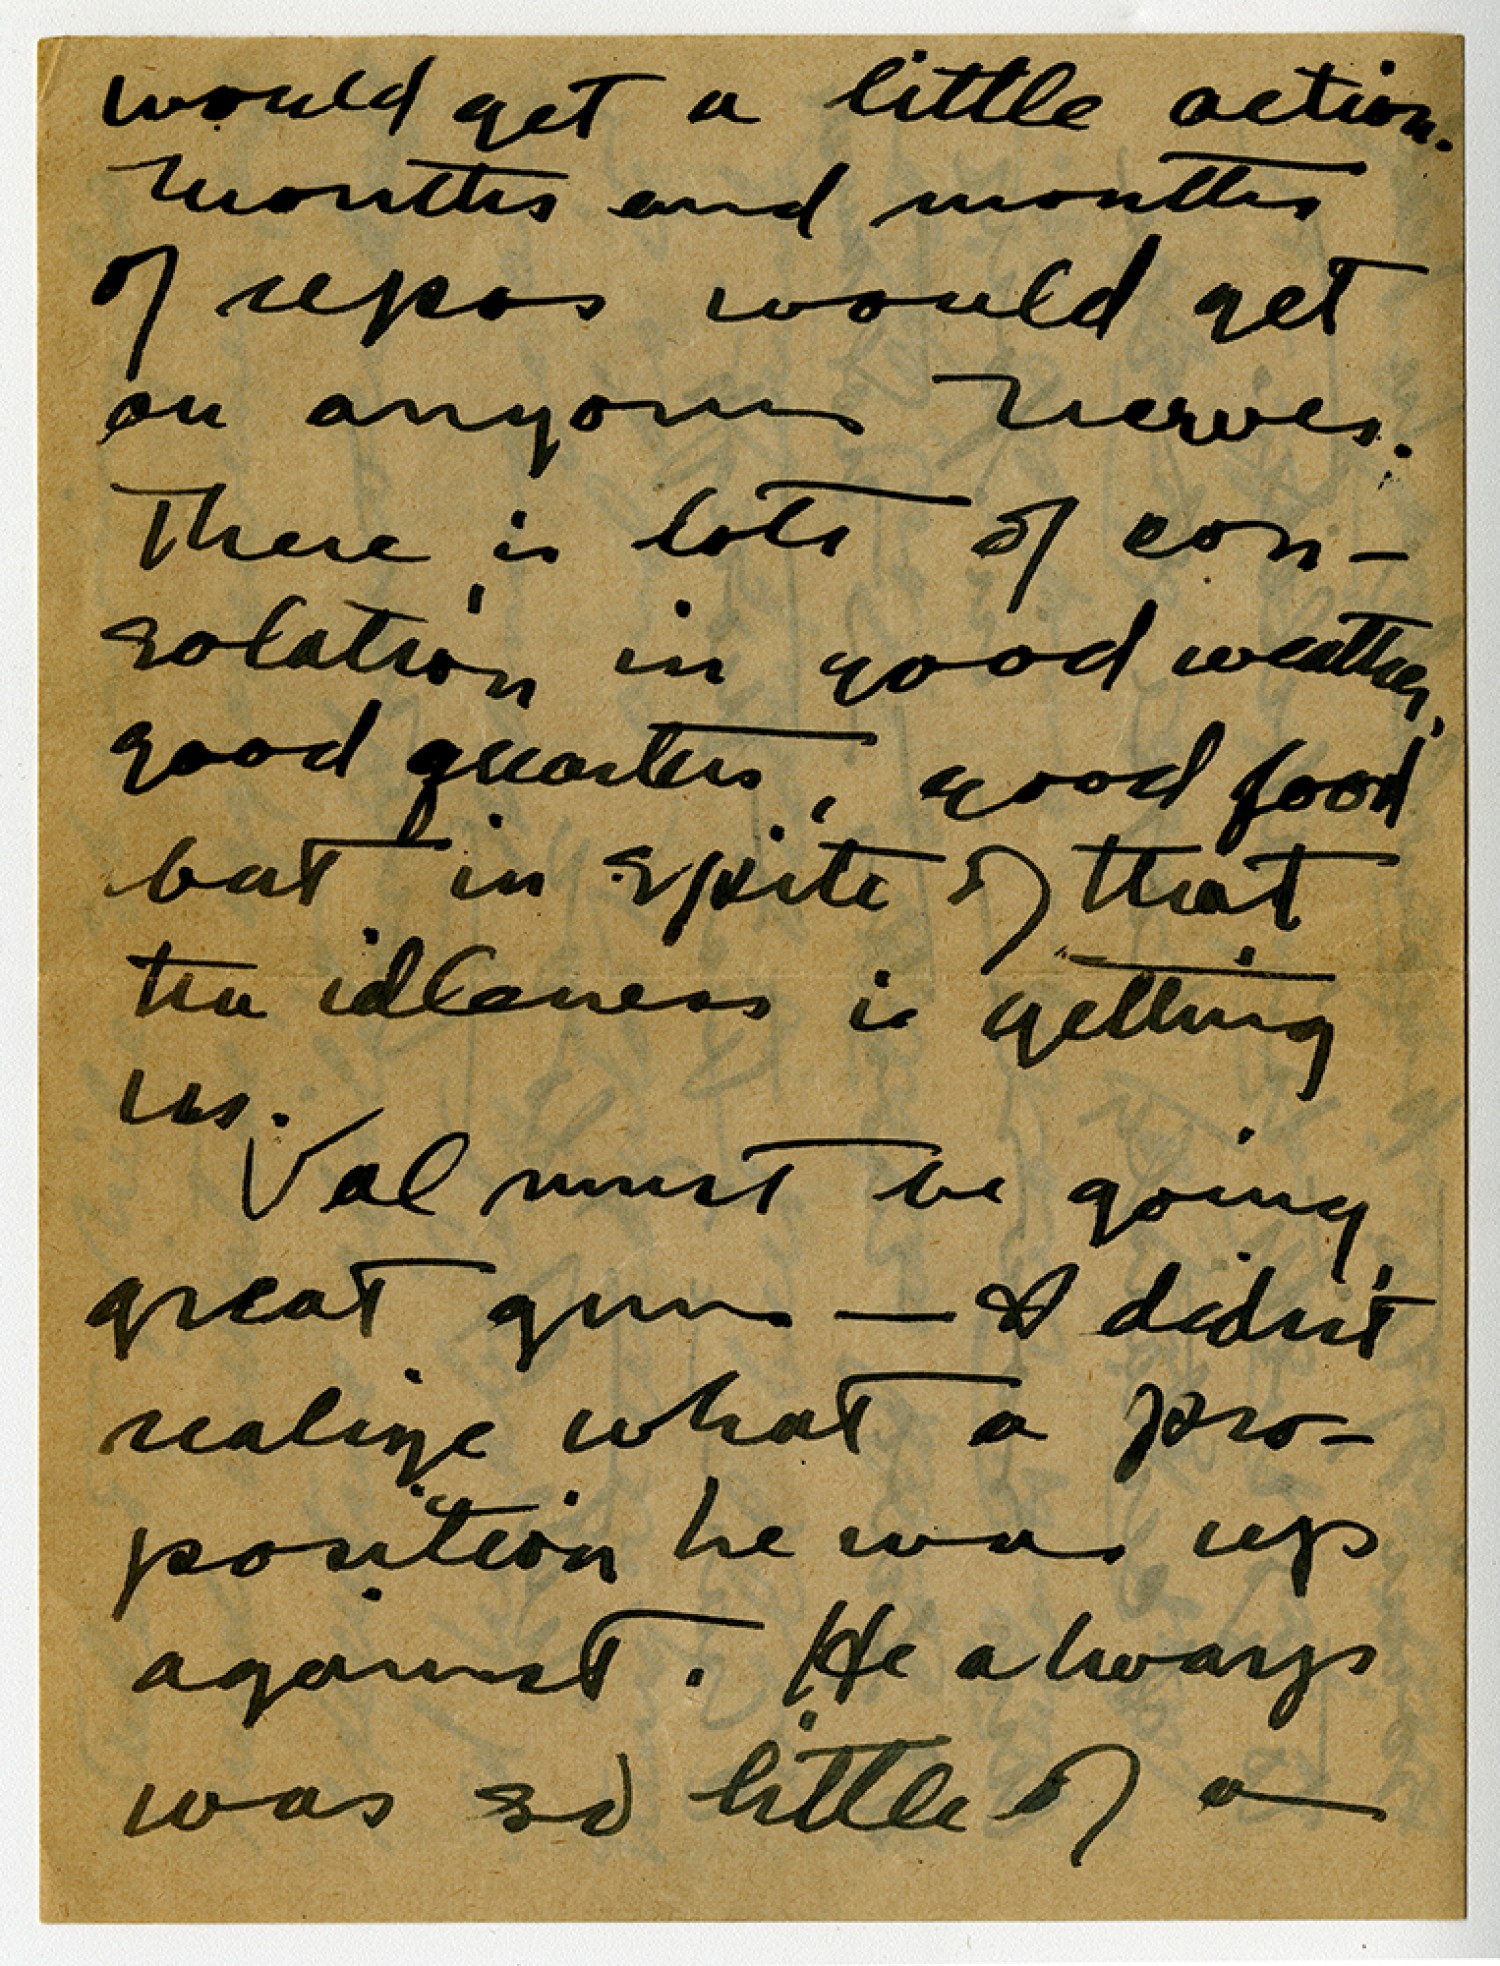 would get a little action.
Months and months
of repos would get
on anyones nerves.
There is lots of con-
solation, in good weather,
good quarters, good food
but in spite of that
the idleness is getting
us.
Val must be going
great guns — I didn't
realize what a pro-
position he was up
against. He always
was so little of a